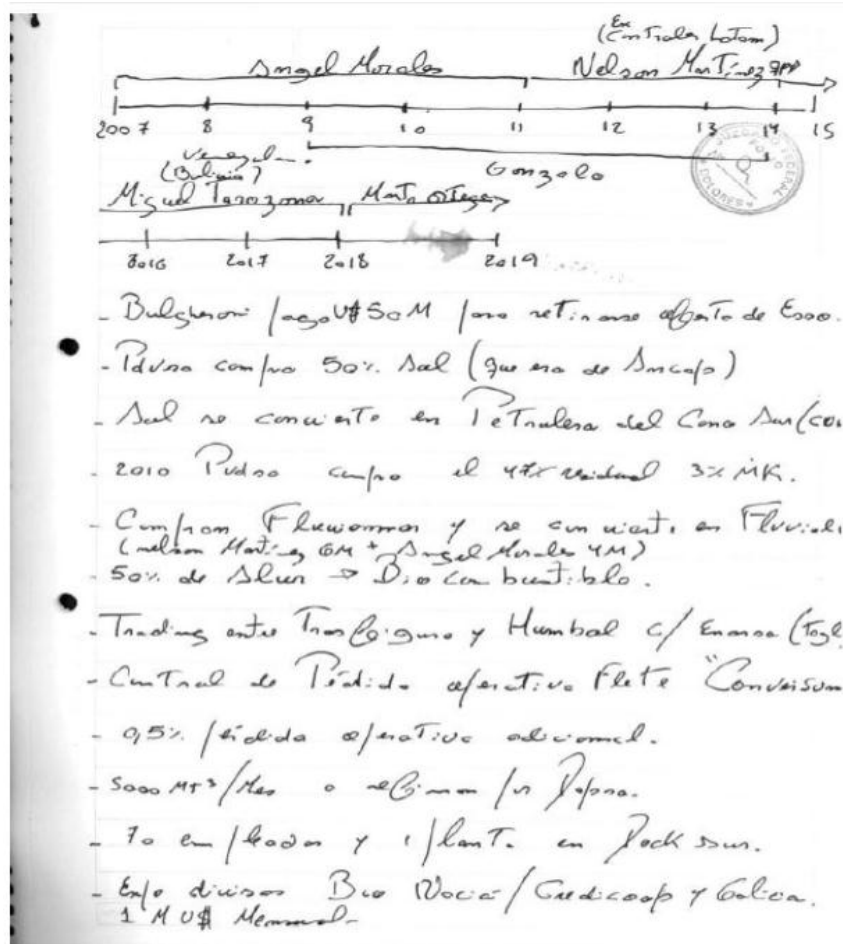 (Ex Controler Lotam)
Angel Morales Nelson Martínez
2007 8 9 10 11 12 13 14 15
Venezol
(Bolivia) Gonzalo
JUZGADO FEDERAL
Miguel Tarazona Marta Ortega
2016 2017 2018 2019
- Bulgheroni pago U$ 50M para retirarse oferta de Esso.
- Pdvsa compra 50% Sol (que era de Ancap)
- Sol se convierte en Petrolera del Cono Sur
- 2010 Pvdsa compro el 47% residual 3% MK.
- Compran Fluviomar y se convierte en
(nelson Martinez 6M + Angel Morales 4M)
50% de Alur → Biocombustible.
- Trading entre y Humbal c/ Enarsa
- Contrato de Pédida operativa Flete "Conversum
- 0,5% pérdida operativa adicional.
- 5000 MT3/Mes a refinar por
- 70 empleados y 1 planta en Dock Sur.
- Expo divisas Bco Nocia / Credicoop y Galicia.
1 M U$ Mensual-